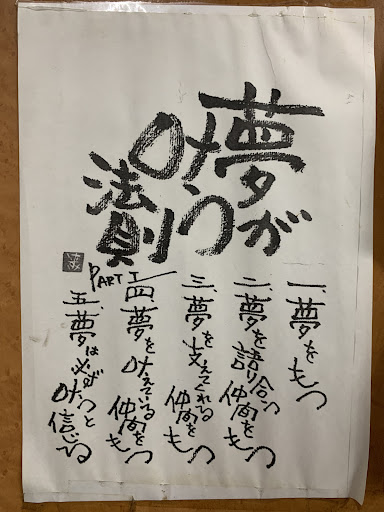 夢が
叶う
法則
PART I
一、夢をもつ
二、夢を語り合う
仲間をもつ
三、夢を支えてくれる
仲間をもつ
四、夢を叶えている
仲間をもつ
五、夢は必ず
叶うと
信じる